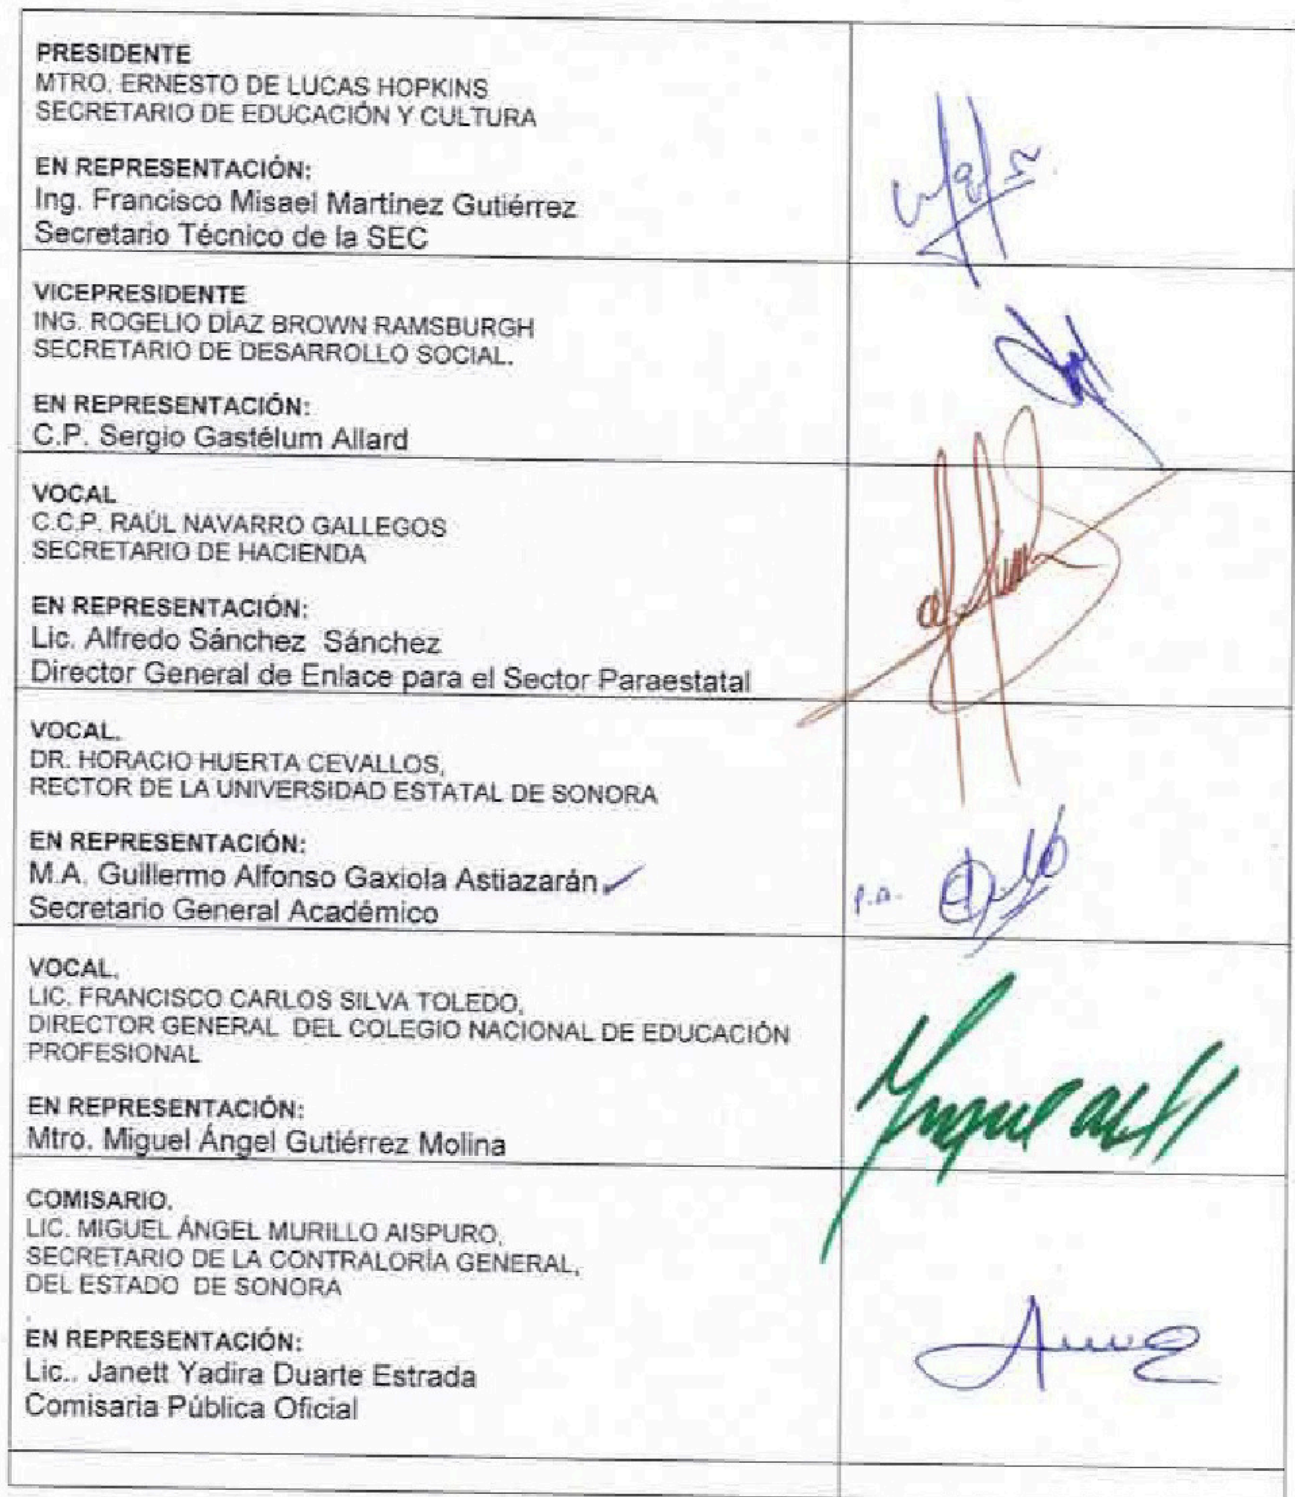 PRESIDENTE
MTRO. ERNESTO DE LUCAS HOPKINS
SECRETARIO DE EDUCACIÓN Y CULTURA
EN REPRESENTACIÓN:
Ing. Francisco Misael Martínez Gutiérrez
Secretario Técnico de la SEC
VICEPRESIDENTE
ING. ROGELIO DÍAZ BROWN RAMSBURGH
SECRETARIO DE DESARROLLO SOCIAL.
EN REPRESENTACIÓN:
C.P. Sergio Gastélum Allard
VOCAL
C.C.P. RAÚL NAVARRO GALLEGOS
SECRETARIO DE HACIENDA
EN REPRESENTACIÓN:
Lic. Alfredo Sánchez Sánchez
Director General de Enlace para el Sector Paraestatal
VOCAL.
DR. HORACIO HUERTA CEVALLOS,
RECTOR DE LA UNIVERSIDAD ESTATAL DE SONORA
EN REPRESENTACIÓN:
M.A. Guillermo Alfonso Gaxiola Astiazarán
Secretario General Académico
P.A.
VOCAL.
LIC. FRANCISCO CARLOS SILVA TOLEDO,
DIRECTOR GENERAL DEL COLEGIO NACIONAL DE EDUCACIÓN
PROFESIONAL
EN REPRESENTACIÓN:
Mtro. Miguel Ángel Gutiérrez Molina
COMISARIO.
LIC. MIGUEL ÁNGEL MURILLO AISPURO,
SECRETARIO DE LA CONTRALORÍA GENERAL,
DEL ESTADO DE SONORA
EN REPRESENTACIÓN:
Lic.. Janett Yadira Duarte Estrada
Comisaria Pública Oficial